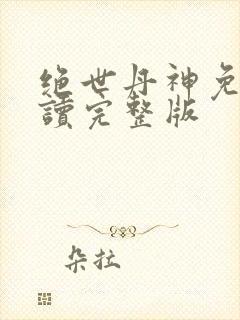 绝世丹神免
讀完整版
朵拉